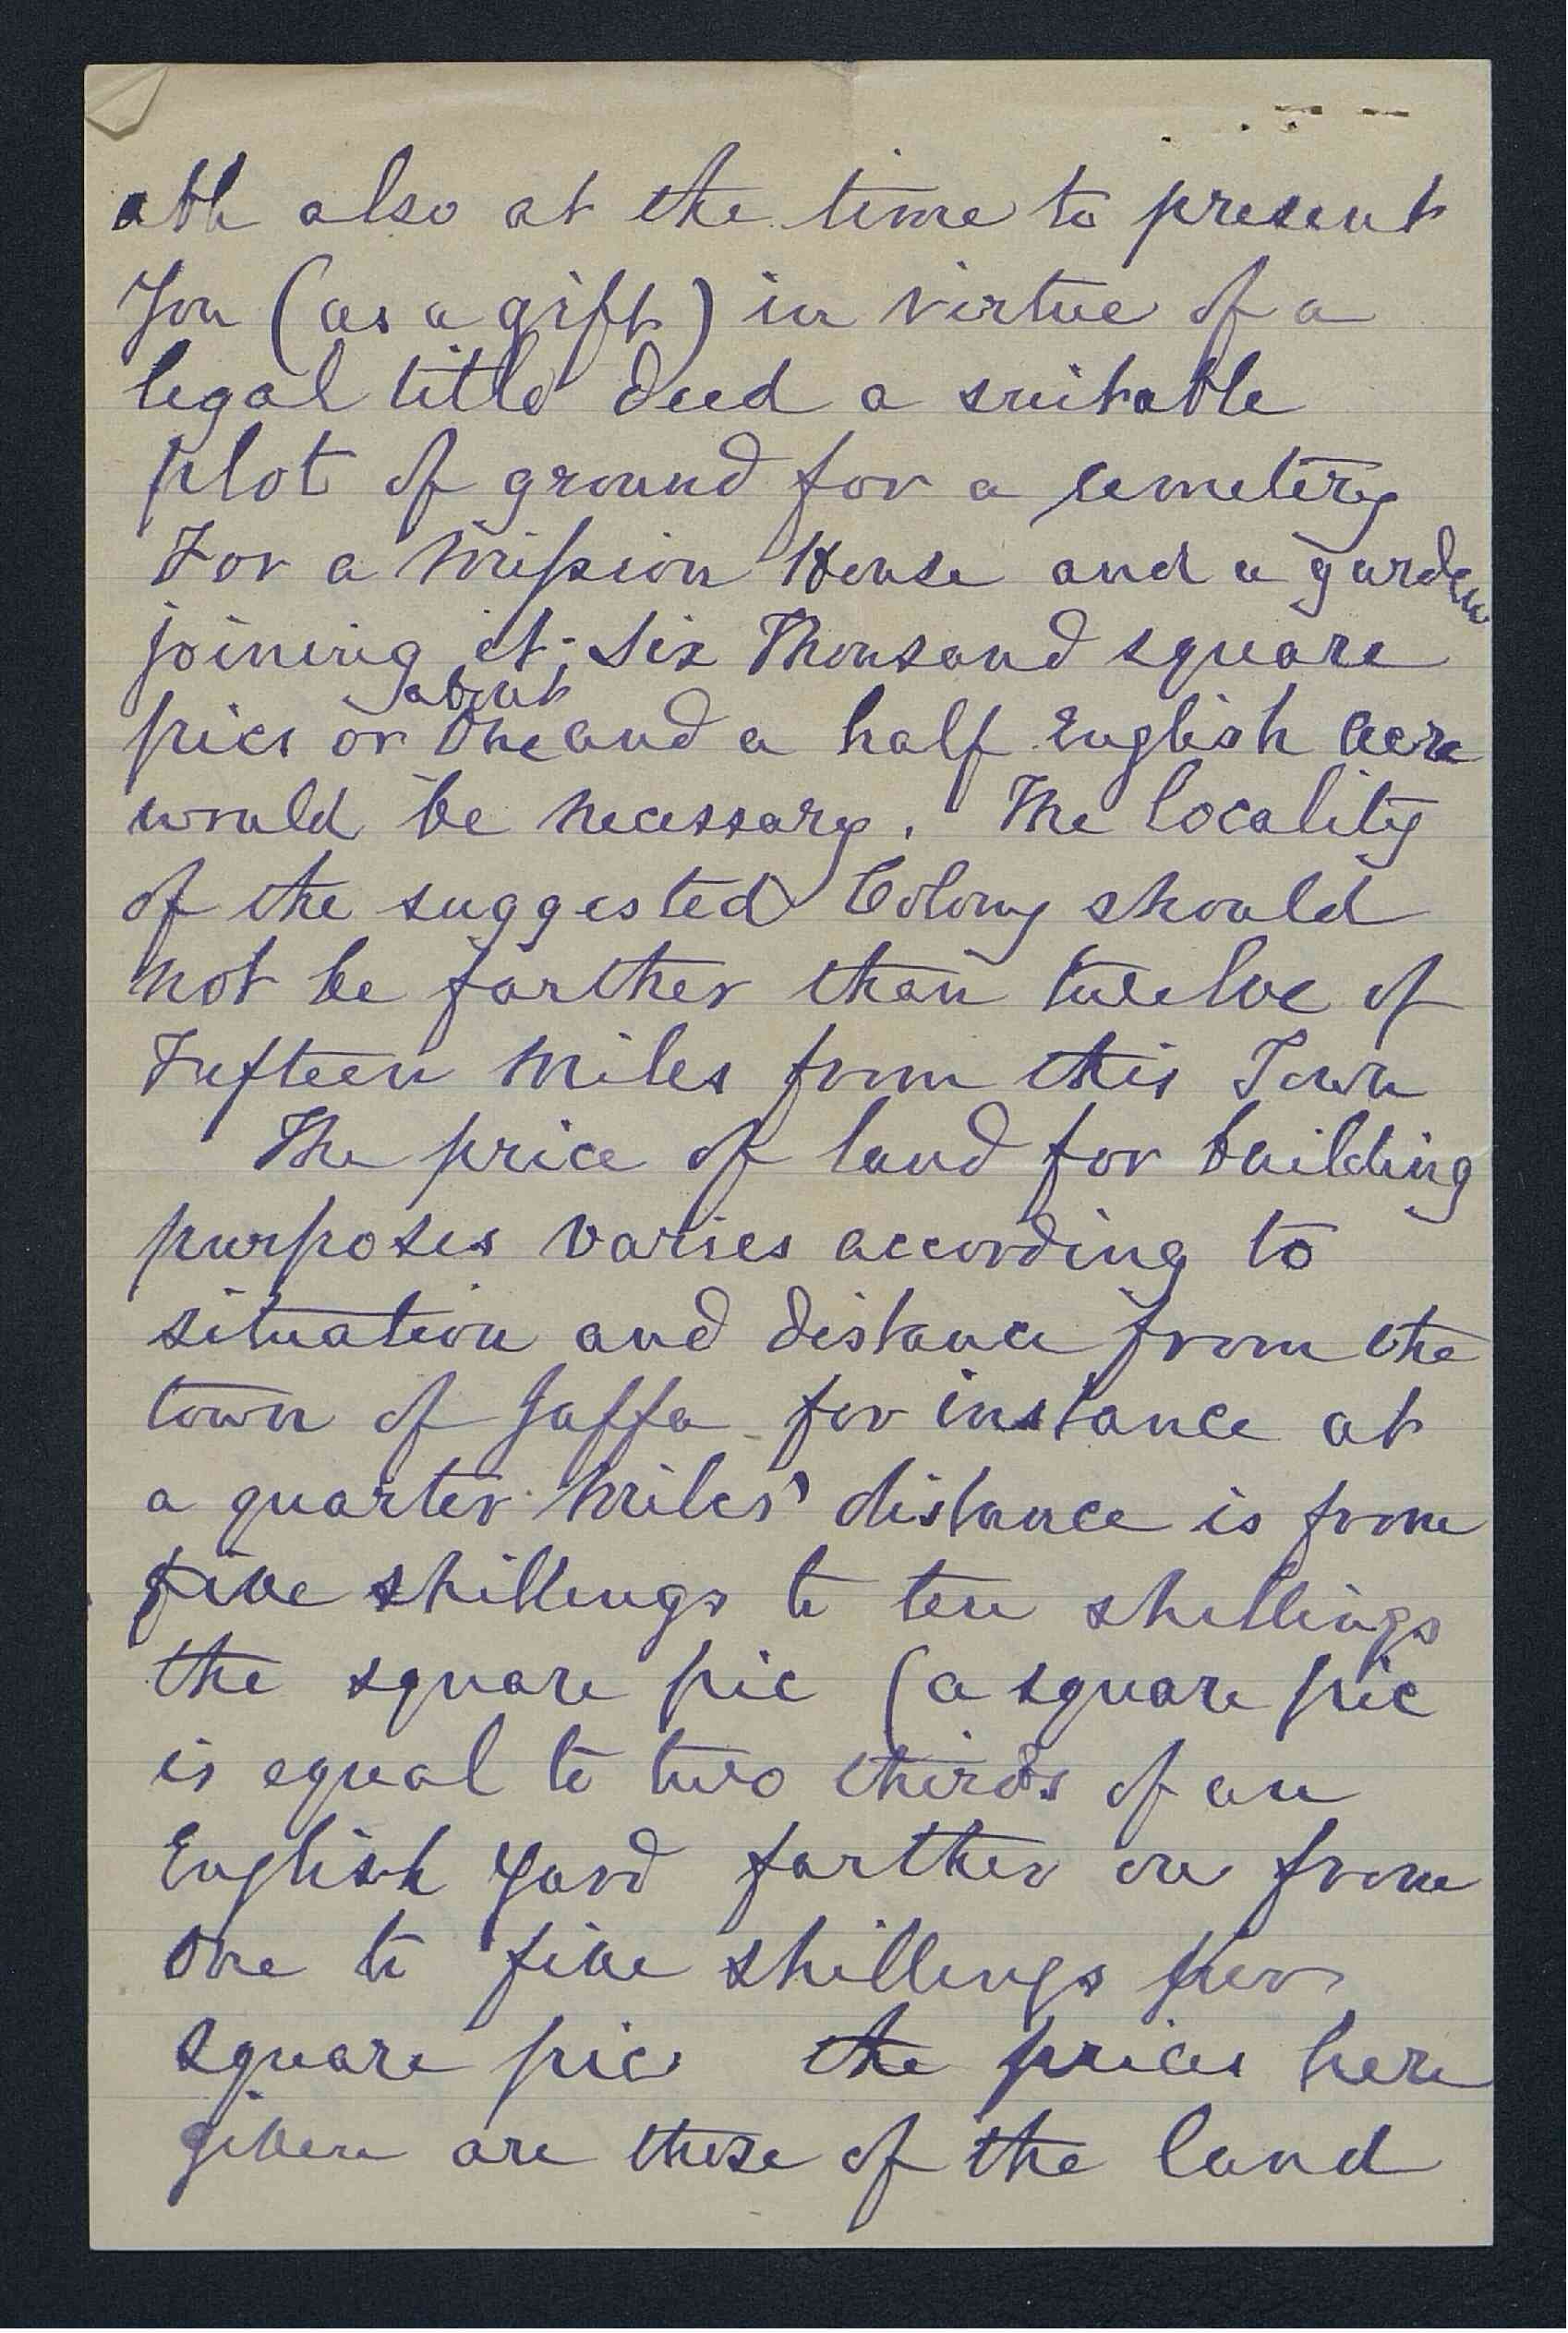 able also at the time to present
You (as a gift) in virtue of a
legal title deed a suitable
plot of ground for a cemetery
For a Mission House and a garden
joining it; Six Thousand square
about
pics or One and a half English acre
would be necessary. The locality
of the suggested Colony should
not be farther than twelve of
Fufteen Miles from this Town
The price of land for building
purposes varies according to
situation and distance from the
town of Jaffa for instance at
a quarter Miles' distance is from
five shillings to ten shillings
the square pic (a square pic
is equal to two thirds of an
English Yard farther on from
One to five shillings per
square pic the prices here
given are those of the land